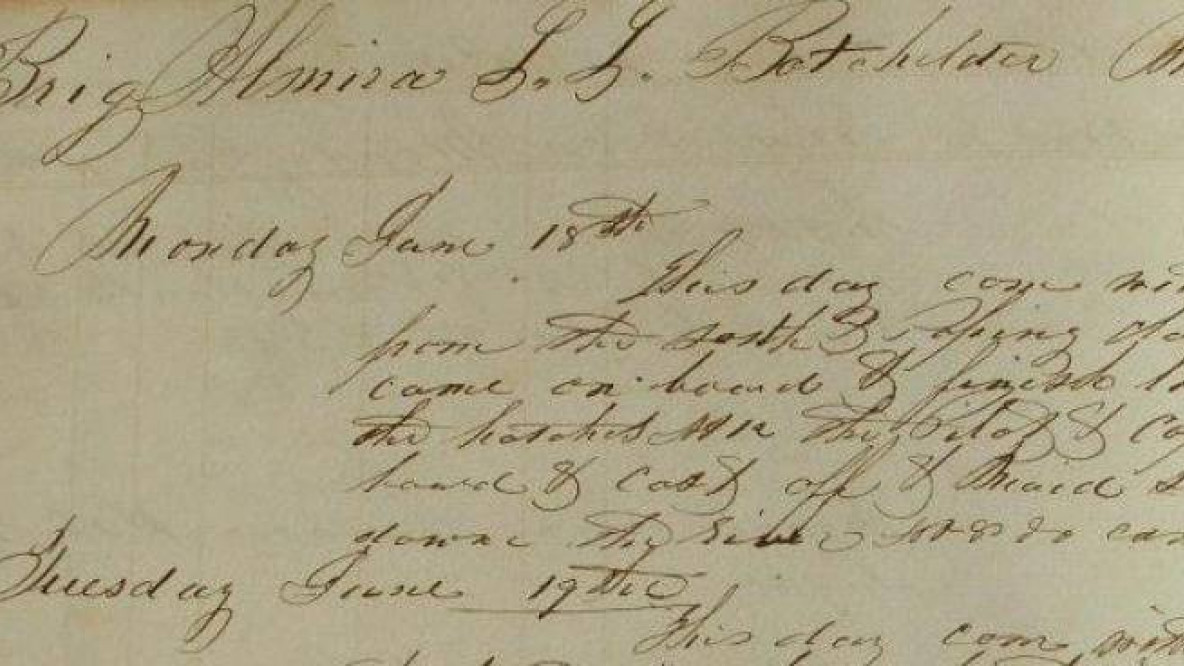 Brig Almira L. L. Batchelder
Monday June 18th
This day com
from the south &
came on board & finish
the hatches At 12 the Pilot &
board & cast off & Maid
downe the River At 8 30
Tuesday June 19th
This day com with